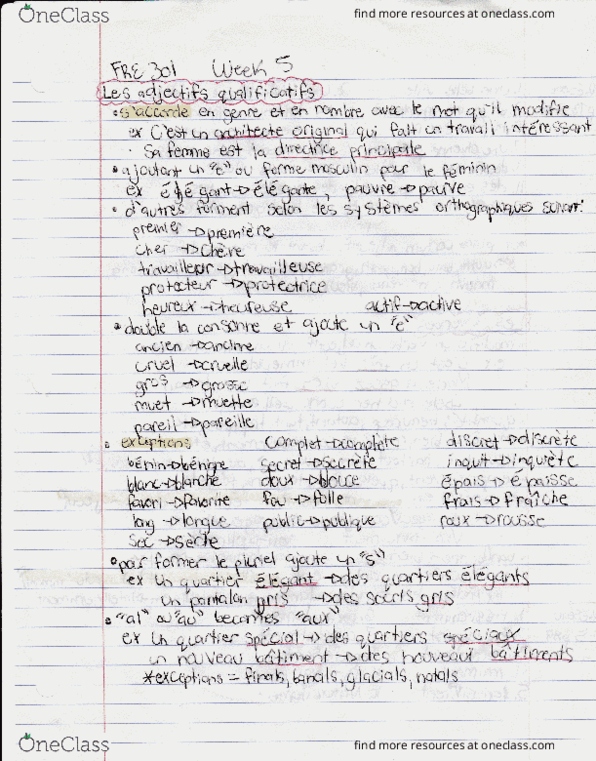 OneClass
find more resources at oneclass.com
FRE 301 Week 5
Les adjectifs qualificatifs
• s'accorde en genre et en nombre avec le mot qu'il modifie
ex C'est un architecte original qui fait un travail intéressant
· Sa femme est la directrice principale
• ajoutant un "e" au forme masculin pour le féminin
ex élégant → élégante, pauvre → pauvre
• d'autres forment selon les systèmes orthographiques suivant:
premier → première
cher → chère
travailleur → travailleuse
protecteur → protectrice
heureux → heureuse actif → active
• double la consonne et ajoute un "e"
ancien →
cruel → cruelle
gros → grosse
muet → muette
pareil → pareille
• exceptions complet → complète discret → discrète
bénin → bénigne secret → secrète inquit → inquiète
blanc → blanche doux → douce épais → épaisse
favori → favorite fou → folle frais → fraîche
long → longue public → publique roux → rousse
sec → sèche
• pour former le pluriel ajoute un "s"
ex un quartier élégant → des quartiers élégants
un pantalon gris → des gris
• "al" ou "au" becomes "aux"
ex un quartier spécial → des quartiers spéciaux
un nouveau bâtiment → des nouveaux bâtiments
*exceptions = finals, banals, glacials, natals
OneClass
find more resources at oneclass.com